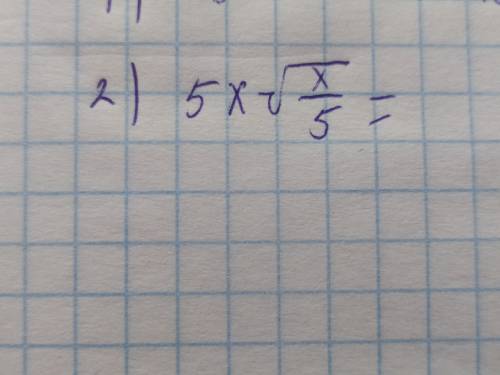 2) 5x√(x/5) =